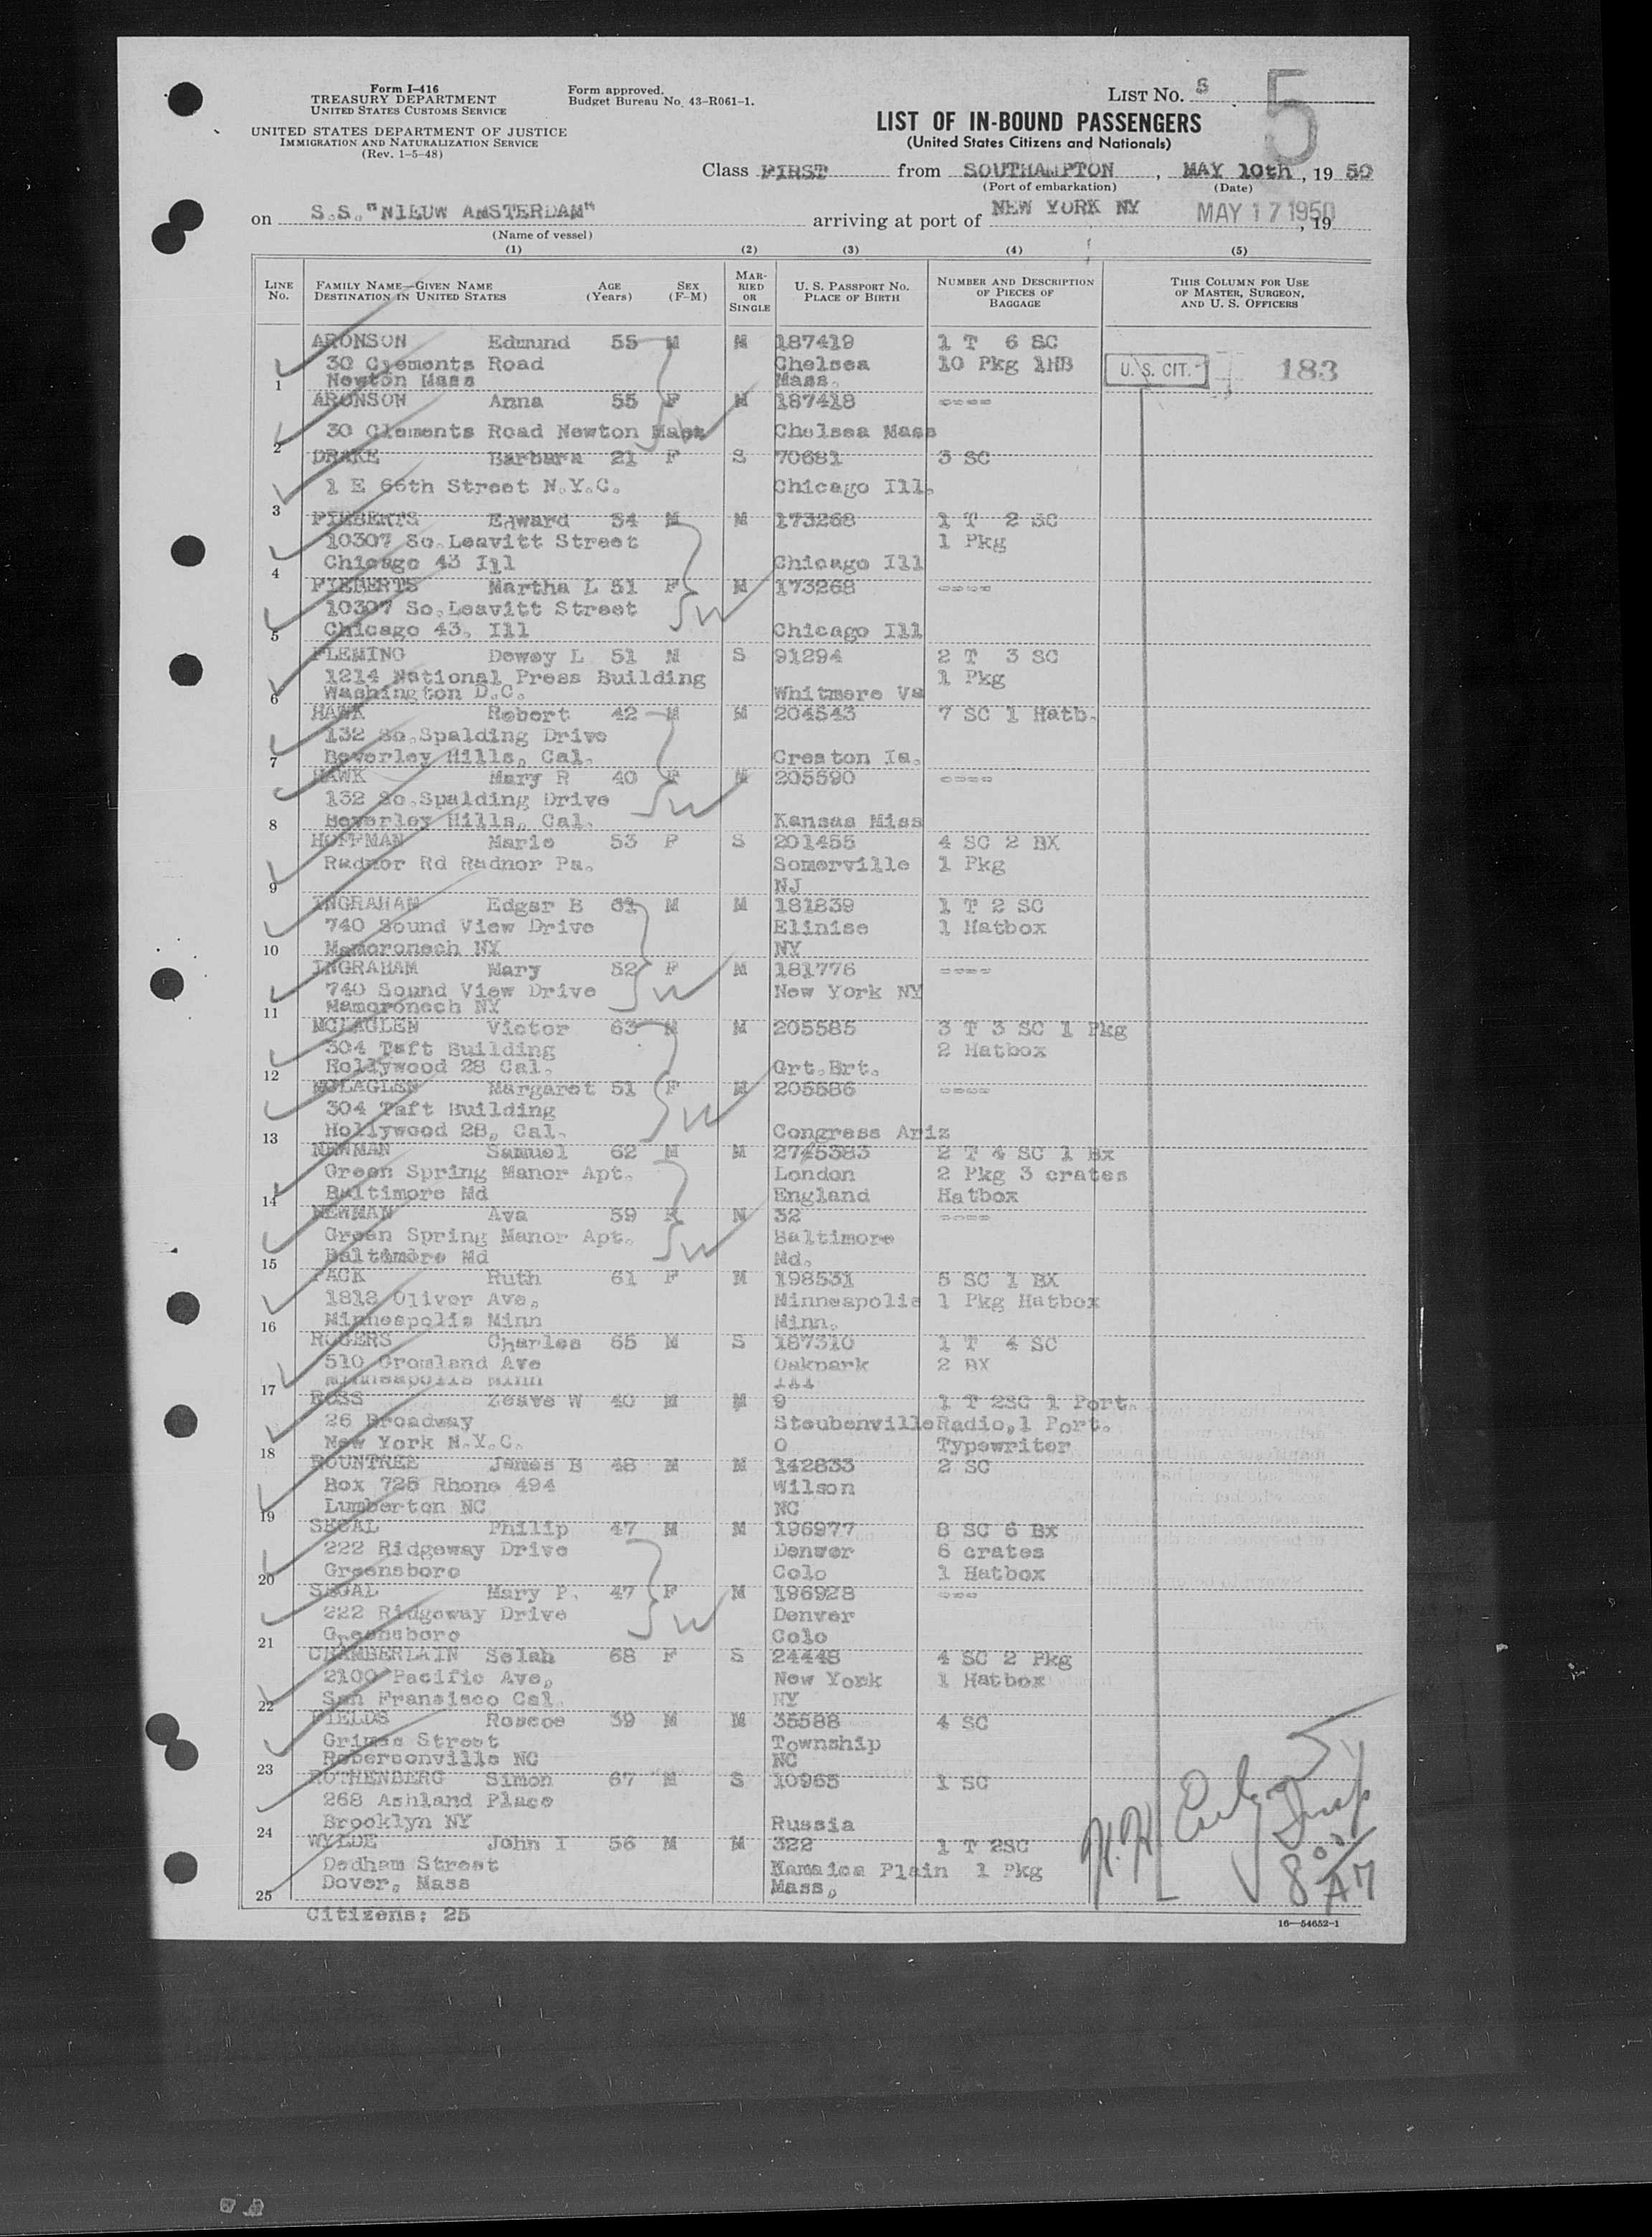 Form I-416
TREASURY DEPARTMENT
UNITED STATES CUSTOMS SERVICE
UNITED STATES DEPARTMENT OF JUSTICE
IMMIGRATION AND NATURALIZATION SERVICE
(Rev. 1-5-48)
Form approved.
Budget Bureau No. 43-R061-1.
LIST No. 5
5
LIST OF IN-BOUND PASSENGERS
(United States Citizens and Nationals)
Class FIRST from SOUTHAMPTON, MAY 10th, 19 50
(Port of embarkation) (Date)
on S.S. "NIEUW AMSTERDAM" arriving at port of NEW YORK NY MAY 17 1950, 19
(Name of vessel)
(1) (2) (3) (4) (5)
LINE No. FAMILY NAME—GIVEN NAME DESTINATION IN UNITED STATES AGE (Years) SEX (F-M) MARRIED OR SINGLE U. S. PASSPORT No. PLACE OF BIRTH NUMBER AND DESCRIPTION OF PIECES OF BAGGAGE THIS COLUMN FOR USE OF MASTER, SURGEON, AND U. S. OFFICERS
ARONSON Edmund 55 M M 187419 1 T 6 SC
30 Clements Road Chelsea 10 Pkg 1HB U. S. CIT. 183
1 Newton Mass Mass.
ARONSON Anna 55 F M 187418 ----
2 30 Clements Road Newton Mass Chelsea Mass
DRAKE Barbara 21 F S 70681 3 SC
1 E 66th Street N.Y.C. Chicago Ill.
3
FIEBERTS Edward 54 M M 173268 1 T 2 SC
10307 So.Leavitt Street 1 Pkg
4 Chicago 43 Ill Chicago Ill
FIEBERTS Martha L 51 F M 173268 ----
10307 So.Leavitt Street
5 Chicago 43, Ill Chicago Ill
FLEMING Dewey L 51 M S 91294 2 T 3 SC
1214 National Press Building 1 Pkg
6 Washington D.C. Whitmore Va
HAWK Robert 42 M M 204543 7 SC 1 Hatb.
132 So.Spalding Drive
7 Beverley Hills, Cal. Creston Ia.
HAWK Mary R 40 F M 205590 ----
132 So.Spalding Drive
8 Beverley Hills, Cal. Kansas Miss
HOFFMAN Marie 53 F S 201455 4 SC 2 BX
Radnor Rd Radnor Pa. Somerville 1 Pkg
9 NJ
INGRAHAM Edgar B 61 M M 181839 1 T 2 SC
740 Sound View Drive Elinise 1 Hatbox
10 Mamoronech NY NY
INGRAHAM Mary 52 F M 181776 ----
740 Sound View Drive New York NY
11 Mamoronech NY
MCLAGLEN Victor 63 M M 205585 3 T 3 SC 1 Pkg
304 Taft Building 2 Hatbox
12 Hollywood 28 Cal. Grt.Brt.
MCLAGLEN Margaret 51 F M 205586 ----
304 Taft Building
13 Hollywood 28, Cal. Congress Ariz
NEWMAN Samuel 62 M M 2745383 2 T 4 SC 1 Bx
Green Spring Manor Apt. London 2 Pkg 3 crates
14 Baltimore Md England Hatbox
NEWMAN Ava 59 F M 32 ----
Green Spring Manor Apt. Baltimore
15 Baltimore Md Md.
PACK Ruth 61 F M 198531 5 SC 1 BX
1818 Oliver Ave, Minneapolis 1 Pkg Hatbox
16 Minneapolis Minn Minn.
ROGERS Charles 65 M S 187310 1 T 4 SC
510 Groweland Ave Oakpark 2 BX
17 Minneapolis Minn Ill
ROSS Zeave W 40 M M 9 1 T 2SC 1 Port.
26 Broadway Steubenville Radio,1 Port.
18 New York N.Y.C. O Typewriter
ROUNTREE James B 48 M M 142833 2 SC
Box 725 Rhone 494 Wilson
19 Lumberton NC NC
SEGAL Philip 47 M M 196977 8 SC 6 Bx
222 Ridgeway Drive Denver 6 crates
20 Greensboro Colo 1 Hatbox
SEGAL Mary P. 47 F M 196928 ---
222 Ridgeway Drive Denver
21 Greensboro Colo
CHAMBERLAIN Selah 68 F S 24448 4 SC 2 Pkg
2100 Pacific Ave, New York 1 Hatbox
22 San Fransisco Cal. NY
FIELDS Roscoe 39 M M 35588 4 SC
Grimes Street Township
23 Robersonville NC NC
ROTHENBERG Simon 67 M S 10965 1 SC
268 Ashland Place
24 Brooklyn NY Russia
WYLDE John I 56 M M 322 1 T 2SC
Dedham Street Hamaica Plain 1 Pkg
25 Dover, Mass Mass,
Citizens: 25
H.H.
8 00 AM
16—54652-1